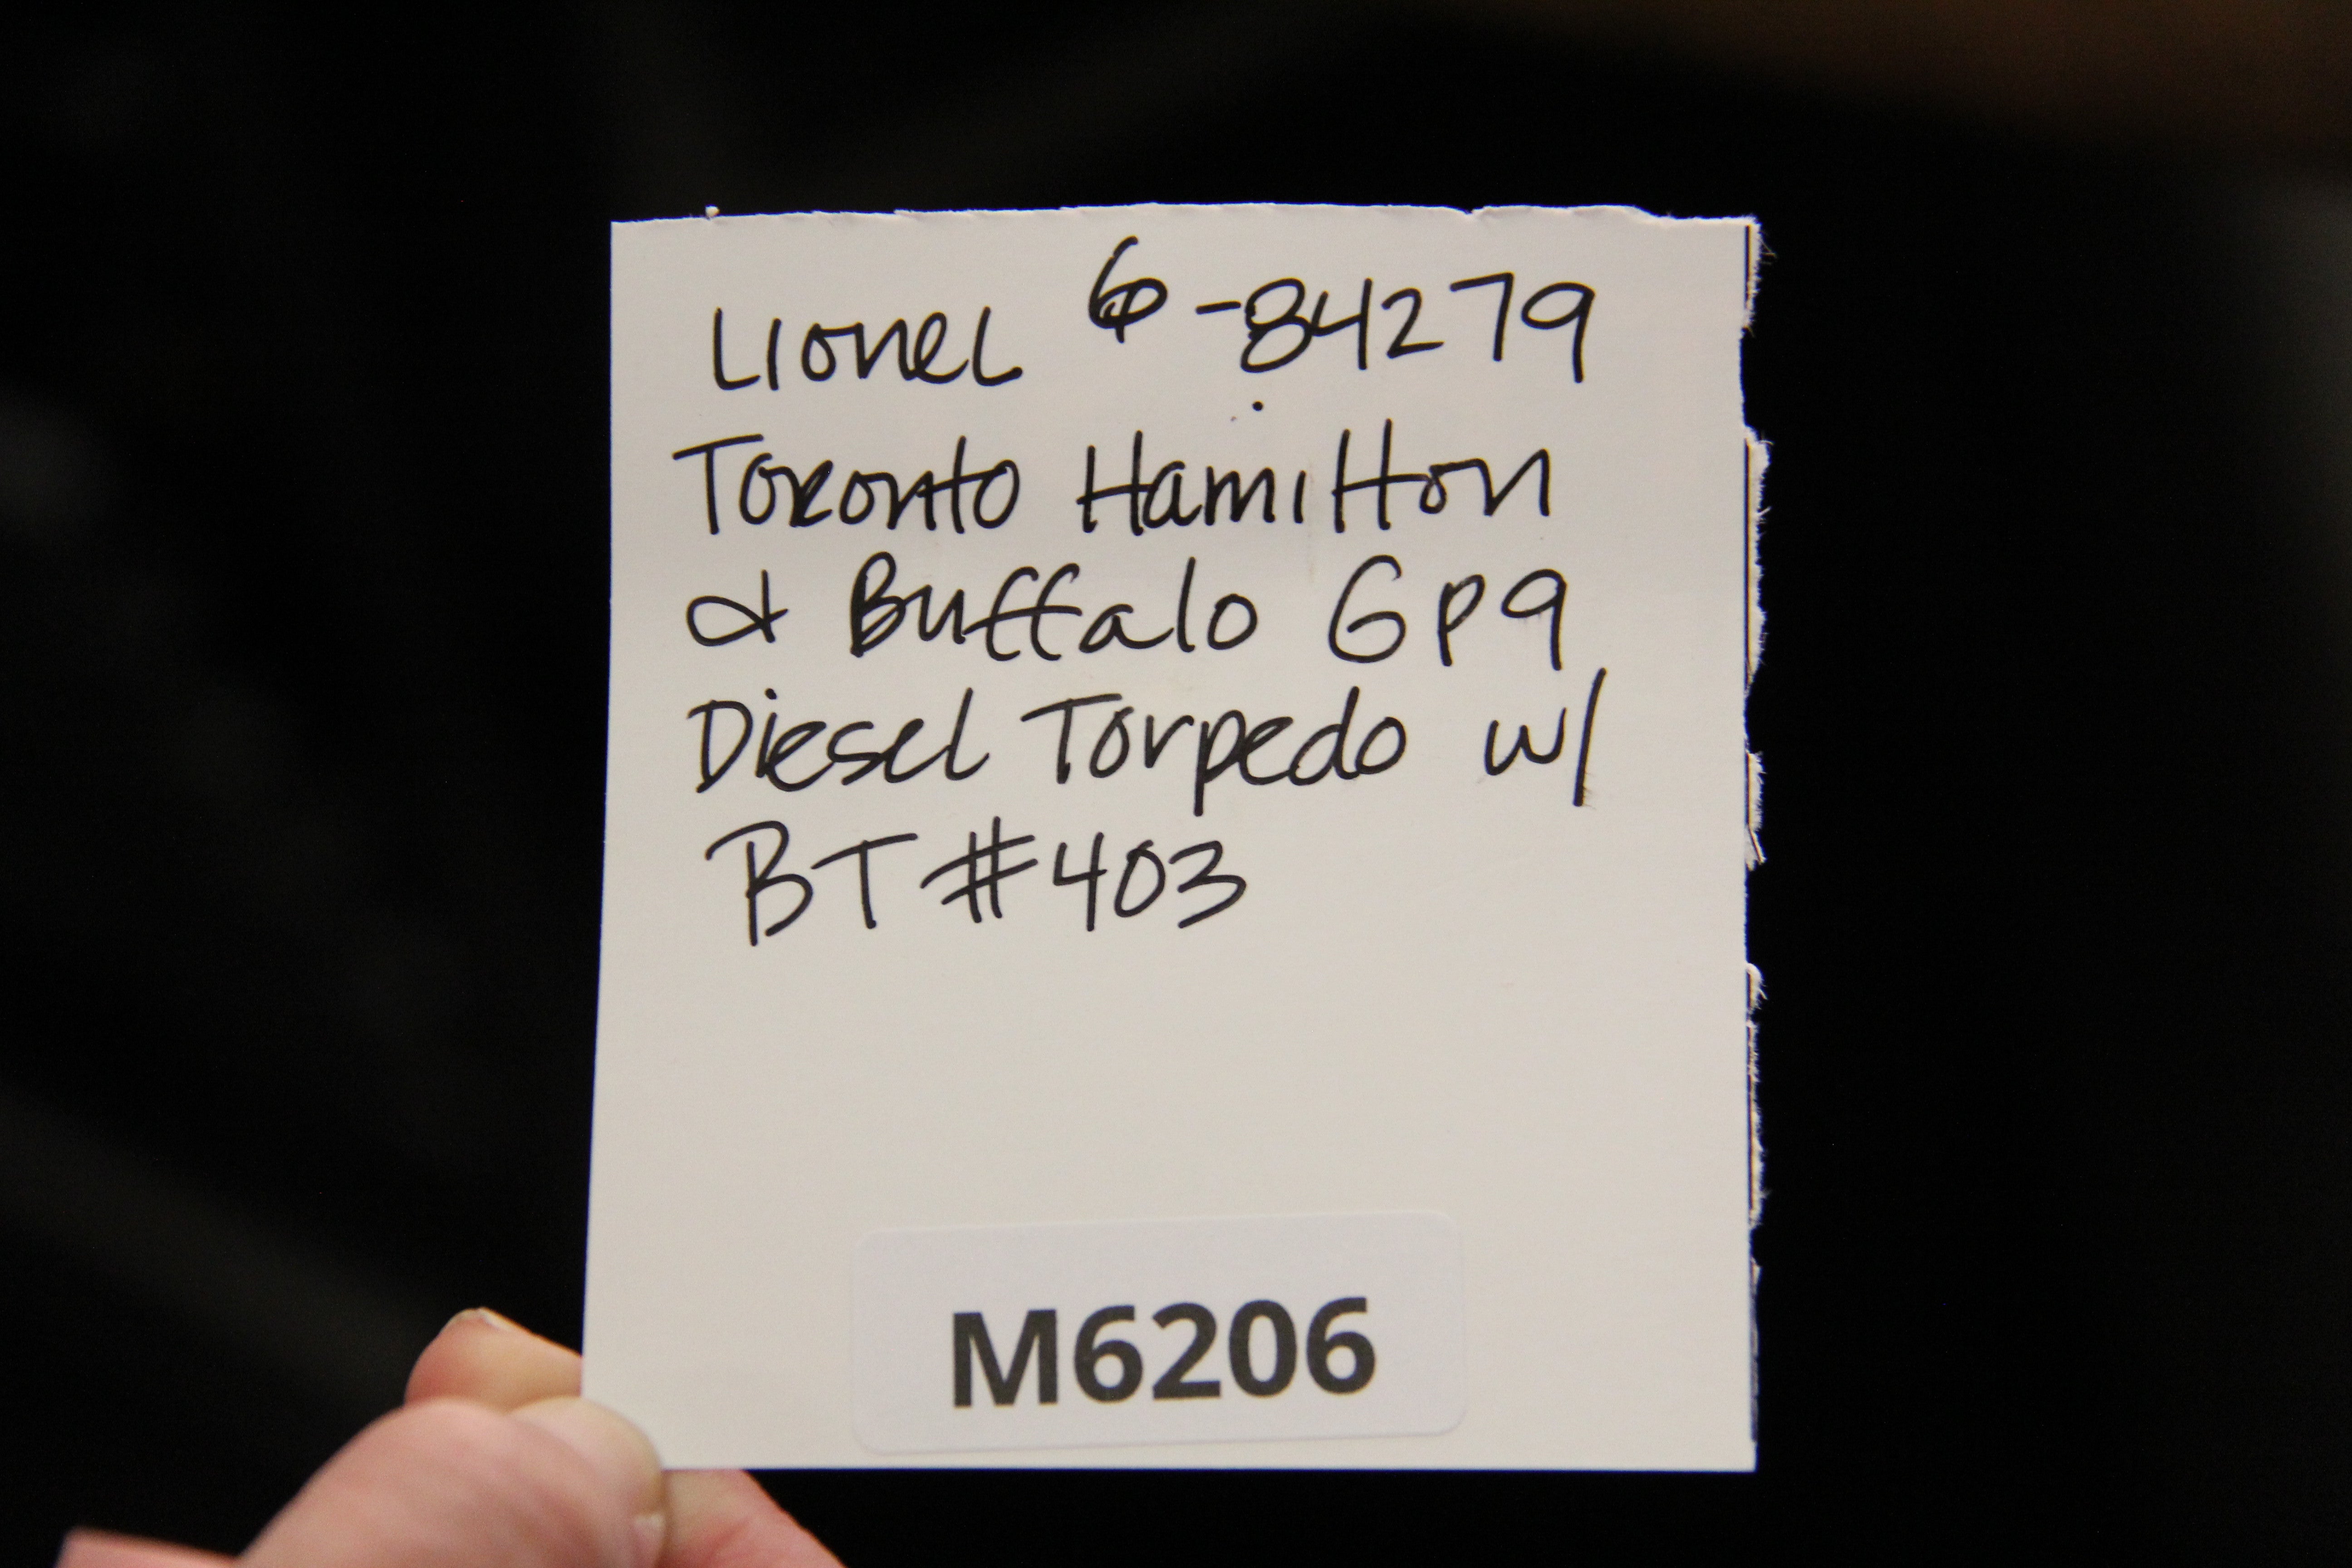 Lionel 6-84279
Toronto Hamilton
& Buffalo GP9
Diesel Torpedo w/
BT #403
M6206